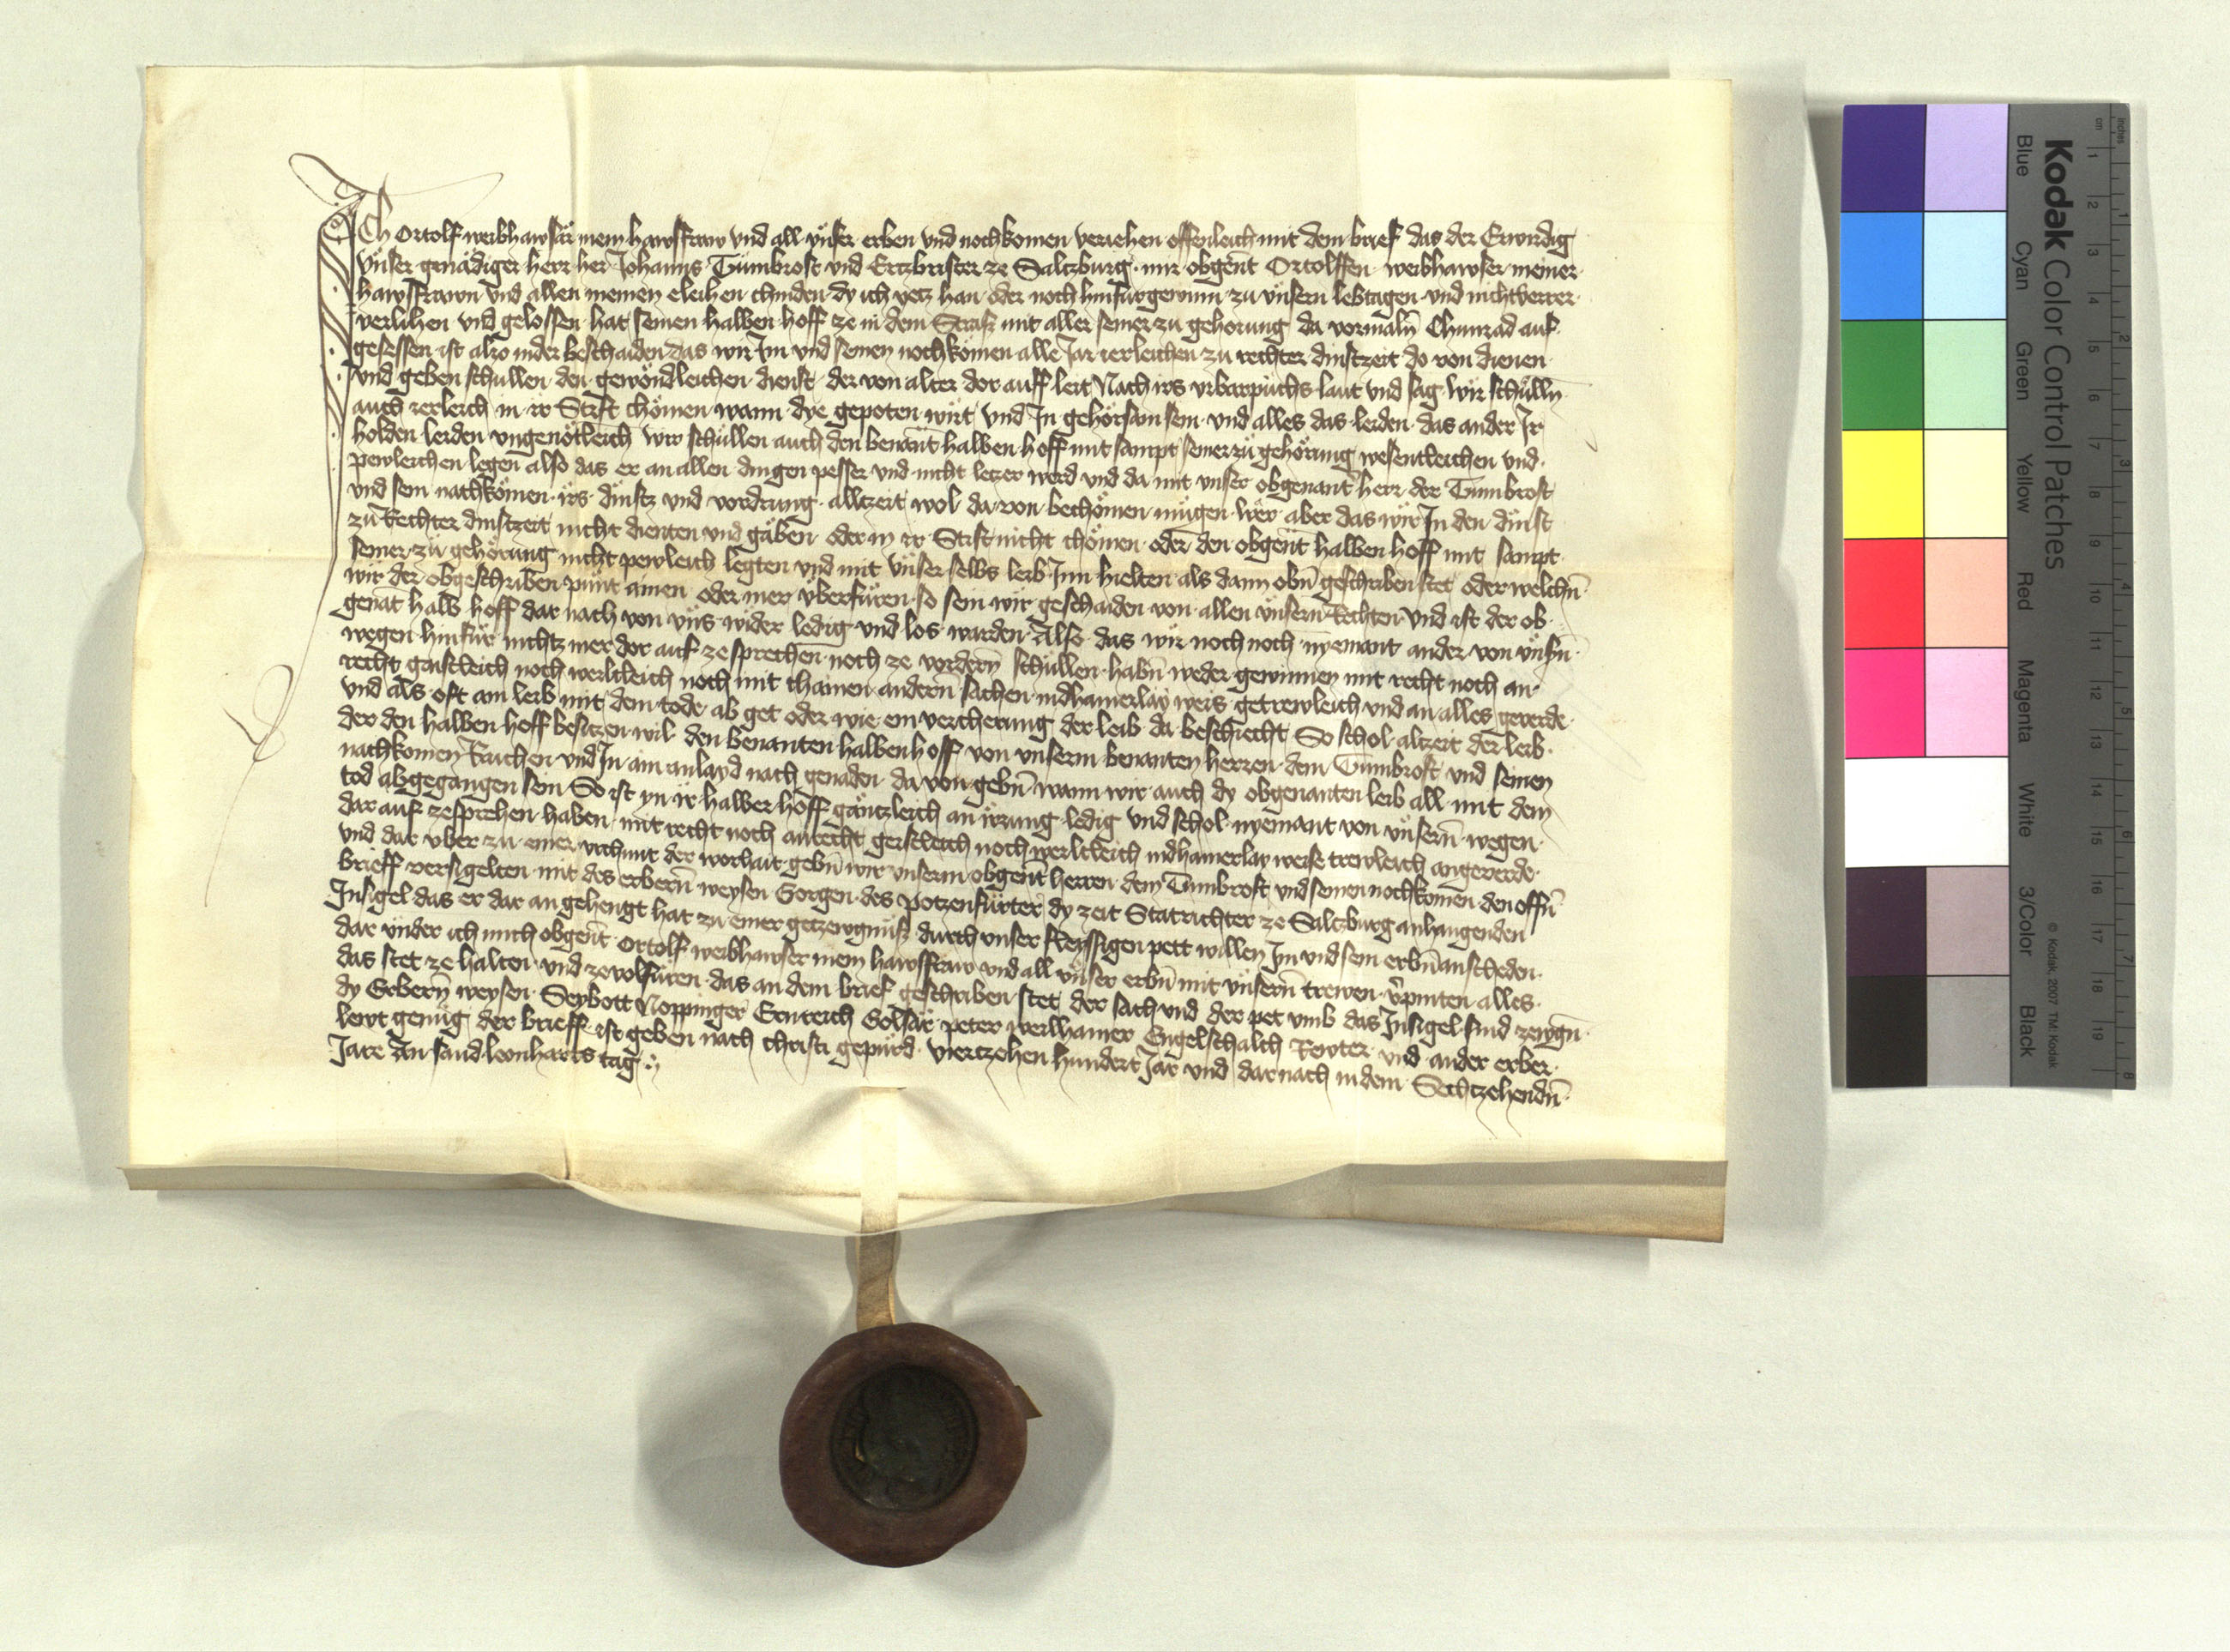 Ich Ortolf weibhawsär mein hawsfraw vnd all vnser erben vnd nochkomen veriehen offenleich mit dem brief das der Erwirdig
vnser genädiger herr her Johanns Tumbrost vnd Ertzbrister ze Salczburg mir obgent Ortolffen weibhawser meiner
hawsfrawn vnd allen meinen eleihen chinden dy ich yetz han oder noch hinfur gewinn zu vnsern lebtagen vnd nicht verrer
verlihen vnd gelossen hat seinen halben hoff ze in dem Strass mit aller seiner zu gehorung da vormaln Chunrad auf
gesessen ist also in der beschaiden das wir Im vnd seinen nochkömen alle Jar ierleichen zu rechter dinstzeit do von dienen
vnd geben schullen den gewöndleichen dienst der von alter dor auff leit Nach irs vrbarpuchs laut vnd sag wir schulln
auch ierleich in ir Stift chömen wann dye gepoten wirt vnd In gehörsam sein vnd alles das leiden das ander Ir
holden leiden vngenötleich wir schullen auch den benant halben hoff mit sampt seiner zu gehörung wesentleichen vnd
pewleichen legen also das er an allen dingen pesser vnd nicht letzer werd vnd da mit vnser obgenant herr der Tumbrost
vnd sein nachkömen irs dinstz vnd vordrung alltzeit wol da von bechömen mügen wer aber das wir In den dinst
zu Rechter dinstzeit nicht dienten vnd gäben oder in ir Stift nicht chömen oder den obgent halben hoff mit sampt
seiner zu gehörung nicht pewleich legten vnd mit vnser selbs leib Inn hielten als dann obn geschriben stet oder welchn
wir der obgeschriben punt ainen oder mer vberfüren so sein wir geschaiden von allen vnsern Rechten vnd ist der ob
genat halb hoff dar nach von vns wider ledig vnd los warden Also das wir noch noch nyemant ander von vnsn
wegen hinfür nichtz mer dor auf ze sprechen noch ze vordern schullen habn weder gewinnen mit recht noch an
recht gaistleich noch werltleich noch mit chainen andern sachen indhainerlay weis getrewleich vnd an alles geverde
vnd als oft ain leib mit dem tode ab get oder wie ein vercherung der leib da beschiecht So schol altzeit der leib
der den halben hoff besitzen wil den benanten halben hoff von vnserm benanten herren dem Tumbrost vnd seinen
nachkomen Raichen vnd In ain anlayd nach genaden da von gebn wann wir auch dy obgenanten leib all mit dem
tod abgegangen sein So ist yn ir halber hoff gäntzleich an irrung ledig vnd schol nyemant von vnsern wegen
dar auf zesprehen haben mit recht noch anrecht geistleich noch werltleich indhainerlay weise trewleich angeverde
vnd dar vber zu einer vrchunt der worhait gebn wir vnserm obgent herren dem Tumbrost vnd seinen nochkomen den offn
brieff versigelten mit des erbern weysen Gorgen des potzenfürter dy zeit Statrichter ze Salczburg anhangenden
Insigel das er dar an gehengt hat zu einer getzewgnuss durch vnser fleyssigen pett willen Im vnd sein erbn anscheden
dar vnder ich mich obgent Ortolf weibhawser mein hawsfraw vnd all vnser erbn mit vnsern trewen verpinten alles
das stet ze halten vnd zevolfüren das an dem brief geschriben stet der sach vnd der pet vmb das Insigel sind zewgn
dy Erbern weysen Seybott Noppinger Ernreich Golsär peter weilhamer Engelschalch Rewter vnd ander erber
lewt genug der brieff ist geben nach christi gepurd viertzehen hundert Jar vnd dar nach in dem Sechtzehendn
Jare An sand leonharts tag
Kodak Color Control Patches
Blue Cyan Green Yellow Red Magenta White 3/Color Black
© Kodak, 2007 TM: Kodak
cm 1 2 3 4 5 6 7 8 9 10 11 12 13 14 15 16 17 18 19
inches 1 2 3 4 5 6 7 8